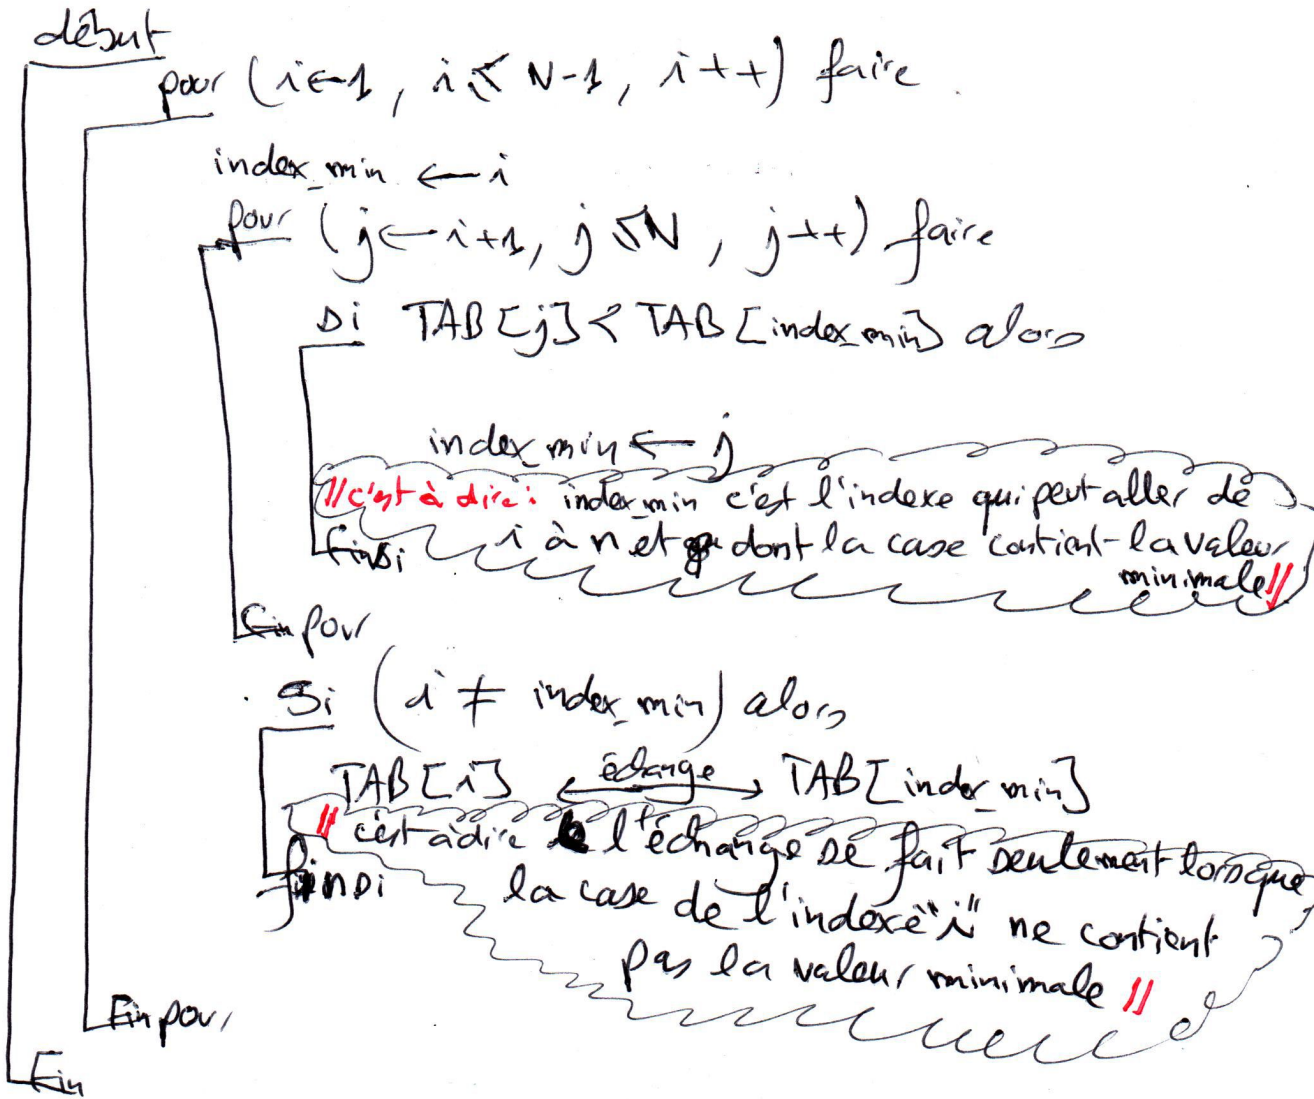 début
pour (i←1, i≤N-1, i++) faire
index_min ← i
pour (j←i+1, j≤N, j++) faire
si TAB[j] < TAB[index_min] alors
index_min ← j
//c'est à dire: index_min c'est l'indexe qui peut aller de
i à n et dont la case contient la valeur
minimale//
finsi
Finpour
Si (i ≠ index_min) alors
TAB[i] ←échange→ TAB[index_min]
// c'est à dire l'échange se fait seulement lorsque
la case de l'indexe "i" ne contient
pas la valeur minimale //
finsi
Finpour
Fin